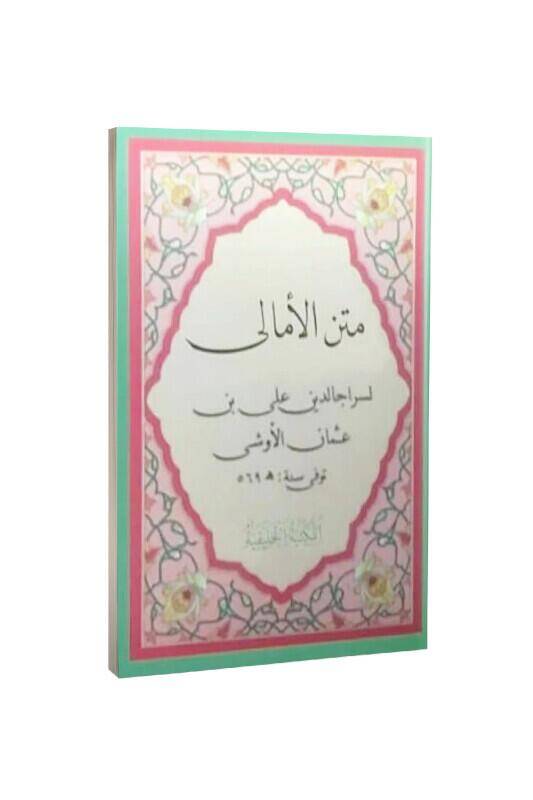 متن الأمالى
لسراجالدين على بن
عثمان الأوشى
توفى سنة: ھ ٥٦٩
المكتبة الحنيفية